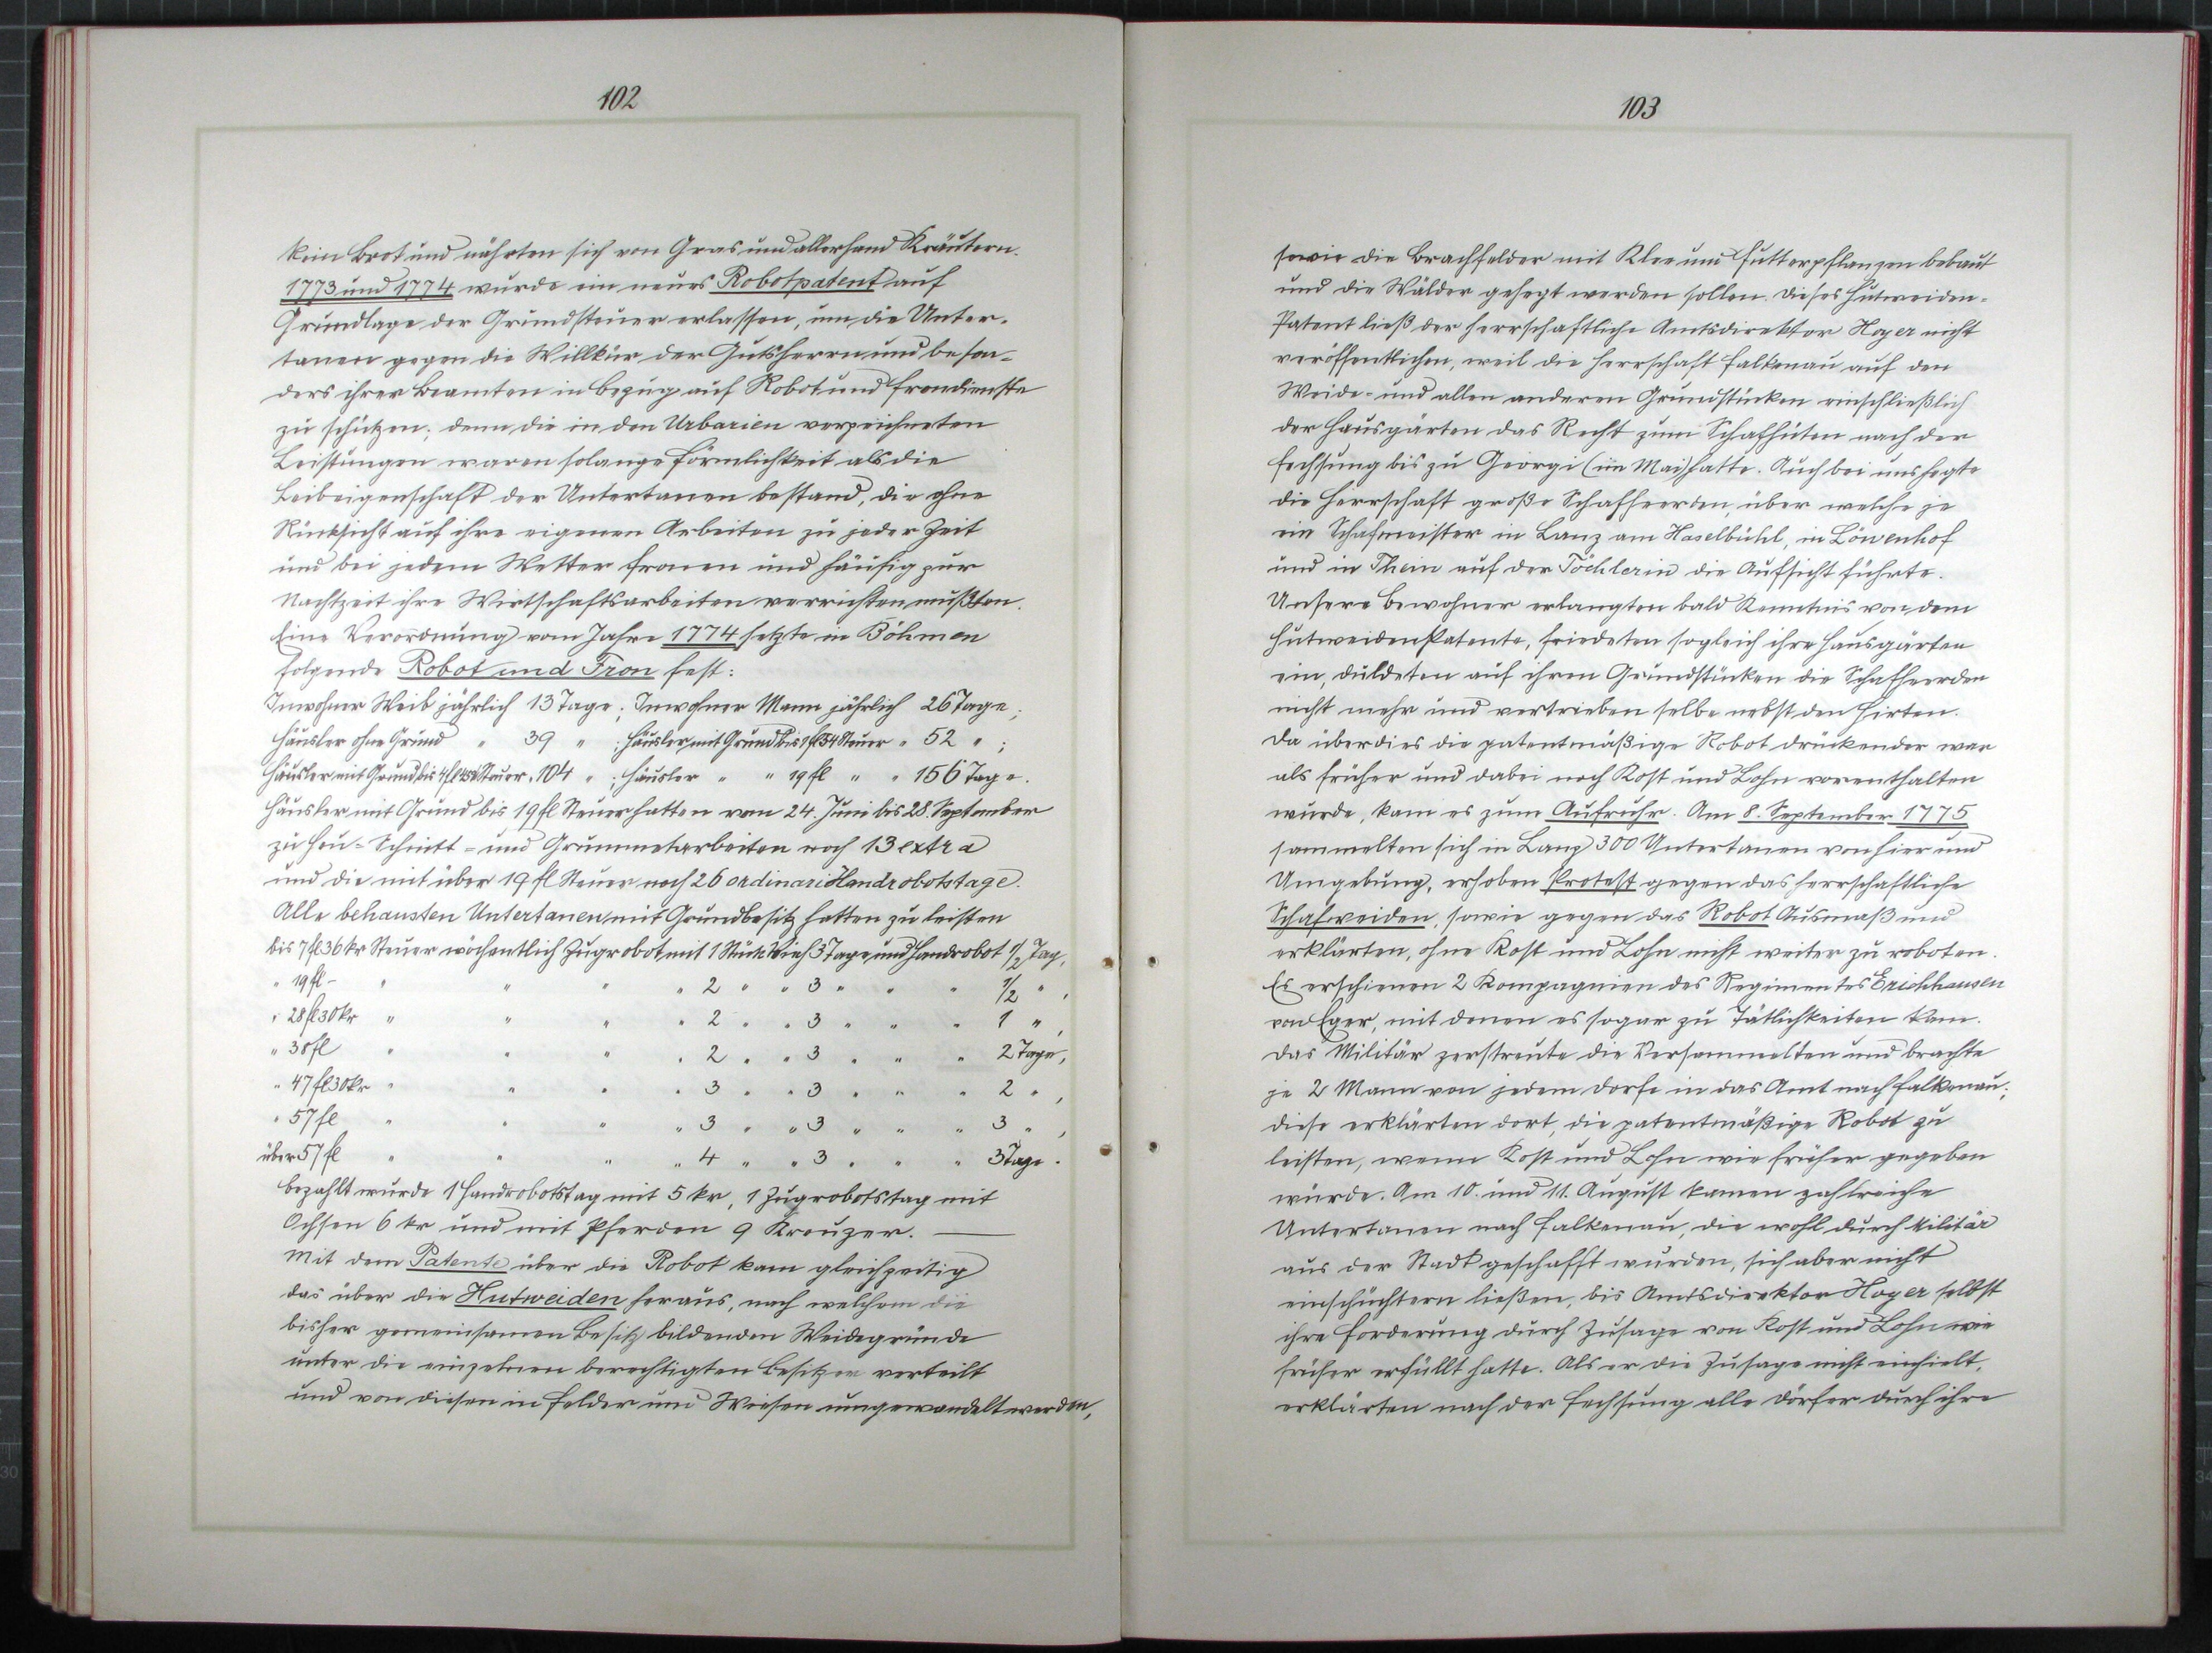 102
kein Brot und nährten sich von Gras und allerhand Kräutern.
1773 und 1774 wurde ein neues Robotpatent auf
Grundlage der Grundsteuer erlassen, um die Unter-
tanen gegen die Willkür der Gutsherrn und beson-
ders ihrer Beamten in bezug auf Robot und Frondienste
zu schützen; denn die in den Urbarien verzeichneten
Leistungen waren solange Förmlichkeit als die
Leibeigenschaft der Untertanen bestand, die ohne
Rücksicht auf ihre eigenen Arbeiten zu jeder Zeit
und bei jedem Wetter fronen und häufig zur
Nachtzeit ihre Wirtschaftsarbeiten verrichten mußten.
Eine Verordnung vom Jahre 1774 setzte in Böhmen
folgende Robot und Fron fest:
Inwohner Weib jährlich 13 Tage; Inwohner Mann jährlich 26 Tage;
Häusler ohne Grund " 39 " ; Häusler mit Grund bis 9fl 34 Steuer " 52 " ;
Häusler mit Grund bis Steuer, 104 " ; Häusler " " 19 fl " " 156 Tage.
Häusler mit Grund bis 19 fl Steuer hatten vom 24. Juni bis 28. September
zu Heu- Schnitt- und Grummetarbeiten noch 13 extra
und die mit über 19 fl Steuer noch 26 ordinari Handrobotstage.
Alle behausten Untertanen mit Grundbesitz hatten zu leisten
bis 7 fl 36 kr Steuer wöchentlich Zugrobot mit 1 Stück Vieh 3 Tage und Handrobot 1/2 Tag,
" 19 fl - " " " " 2 " " 3 " " " 1/2 " ,
" 28 fl 30 kr " " " " 2 " " 3 " " " 1 " ,
" 38 fl " " " " 2 " " 3 " " " 2 Tage,
" 47 fl 30 kr " " " " 3 " " 3 " " " 2 " ,
" 57 fl " " " " 3 " " 3 " " " 3 " ,
über 57 fl " " " " 4 " " 3 " " " 3 Tage.
bezahlt wurde 1 Handrobotstag mit 5 kr, 1 Zugrobotstag mit
Ochsen 6 kr und mit Pferden 9 Kreuzer. —
Mit dem Patente über die Robot kam gleichzeitig
das über die Hutweiden heraus, nach welchem die
bisher gemeinsamen Besitz bildenden Weidegründe
unter die einzelnen berechtigten Besitzer verteilt
und von diesen in Felder und Wiesen umgewandelt werden,
103
sowie die Brachfelder mit Klee und Futterpflanzen bebaut
und die Wälder gehegt werden sollen. Dieses Hutweiden-
Patent ließ der herrschaftliche Amtsdirektor Hoyer nicht
veröffentlichen, weil die Herrschaft Falkenau auf den
Weide- und allen anderen Grundstücken einschließlich
der Hausgärten das Recht zum Schafhüten nach der
Fechsung bis zu Georgi (im Mai) hatte. Auch bei uns hegte
die Herrschaft große Schafheerden, über welche je
ein Schafmeister in Lanz am Haselbühl, in Löwenhof
und in Thein auf der Töchlerin die Aufsicht führte.
Unsere Bewohner erlangten bald Kenntnis von dem
HutweidenPatente, friedeten sogleich ihre Hausgärten
ein, duldeten auf ihren Grundstücken die Schafheerden
nicht mehr und vertrieben selbe nebst den Hirten.
Da überdies die patentmäßige Robot drückender war
als früher und dabei noch Kost und Lohn vorenthalten
wurde, kam es zum Aufruhr. Am 8. September 1775
sammelten sich in Lanz 300 Untertanen von hier und
Umgebung, erhoben Protest gegen das herrschaftliche
Schafweiden, sowie gegen das Robot Ausmaß und
erklärten, ohne Kost und Lohn nicht weiter zu roboten.
Es erschienen 2 Kompagnien des Regimentes Erichhausen
von Eger, mit denen es sogar zu Tätlichkeiten kam.
Das Militär zerstreute die Versammelten und brachte
je 2 Mann von jedem Dorfe in das Amt nach Falkenau;
diese erklärten dort, die patentmäßige Robot zu
leisten, wenn Kost und Lohn wie früher gegeben
würde. Am 10. und 11. August kamen zahlreiche
Untertanen nach Falkenau, die wohl durch Militär
aus der Stadt geschafft wurden, sich aber nicht
einschüchtern ließen, bis Amtsdirektor Hoyer selbst
ihre Forderung durch Zusage von Kost und Lohn wie
früher erfüllt hatte. Als er die Zusage nicht einhielt,
erklärten nach der Fechsung alle Dörfer durch ihre